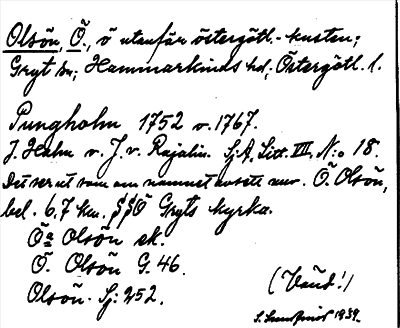 Olsön, Ö., ö utanför östergötl.-kusten;
Gryt sn; Hammarkinds hd; Östergötl. l.
Pungholm 1752 v. 1767.
J. Hahn v. J. v. Rajalin. SjA, Litt. VII, N:o 18.
Det ser ut som om namnet avsett nuv. Ö. Olsön,
bel. 6,7 km. SSÖ Gryts kyrka.
Öa Olsön ek.
Ö. Olsön G. 46.
Olsön. Sj: 252.
(Vänd!)
1939.